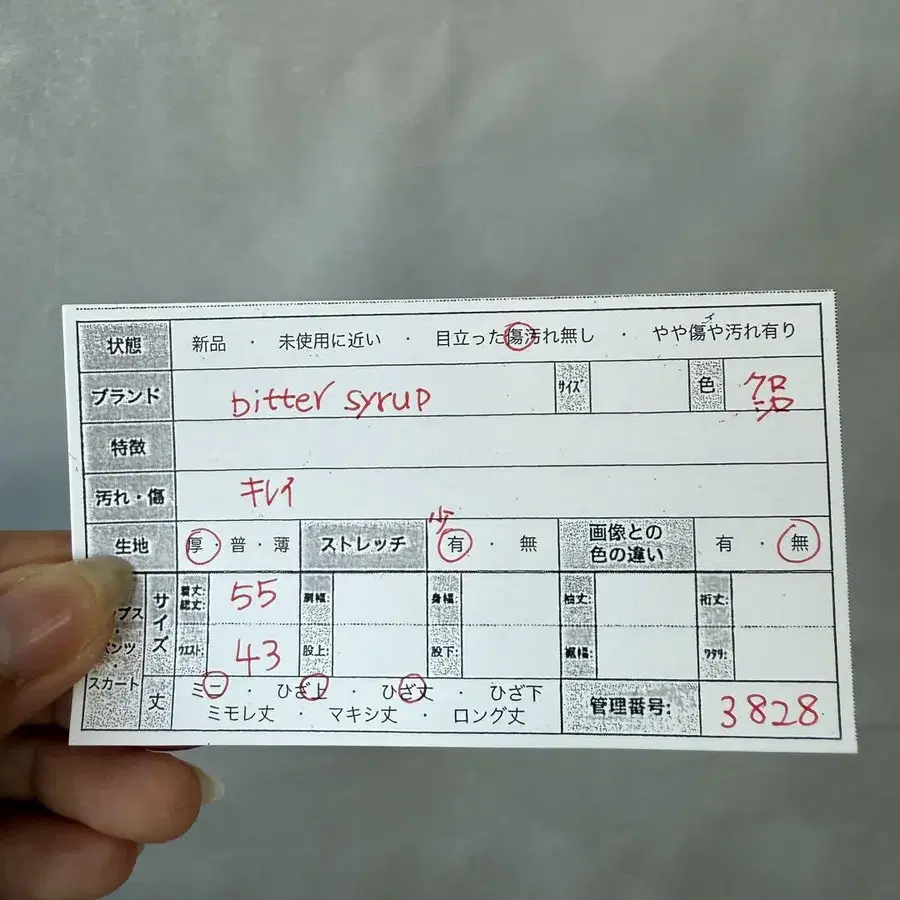 状態 新品 ・ 未使用に近い ・ 目立った傷汚れ無し ・ やや傷や汚れ有り
ブランド bitter syrup サイズ 色
特徴
汚れ・傷 キレイ
少
生地 厚・普・薄 ストレッチ 有 ・ 無 画像との色の違い 有 ・ 無
サイズ 着丈: 総丈: 55 肩幅: 身幅: 袖丈: 裄丈:
ウエスト: 43 股上: 股下: 裾幅: ワタリ:
スカート 丈 ミニ ・ ひざ上 ・ ひざ丈 ・ ひざ下
ミモレ丈 ・ マキシ丈 ・ ロング丈 管理番号: 3828